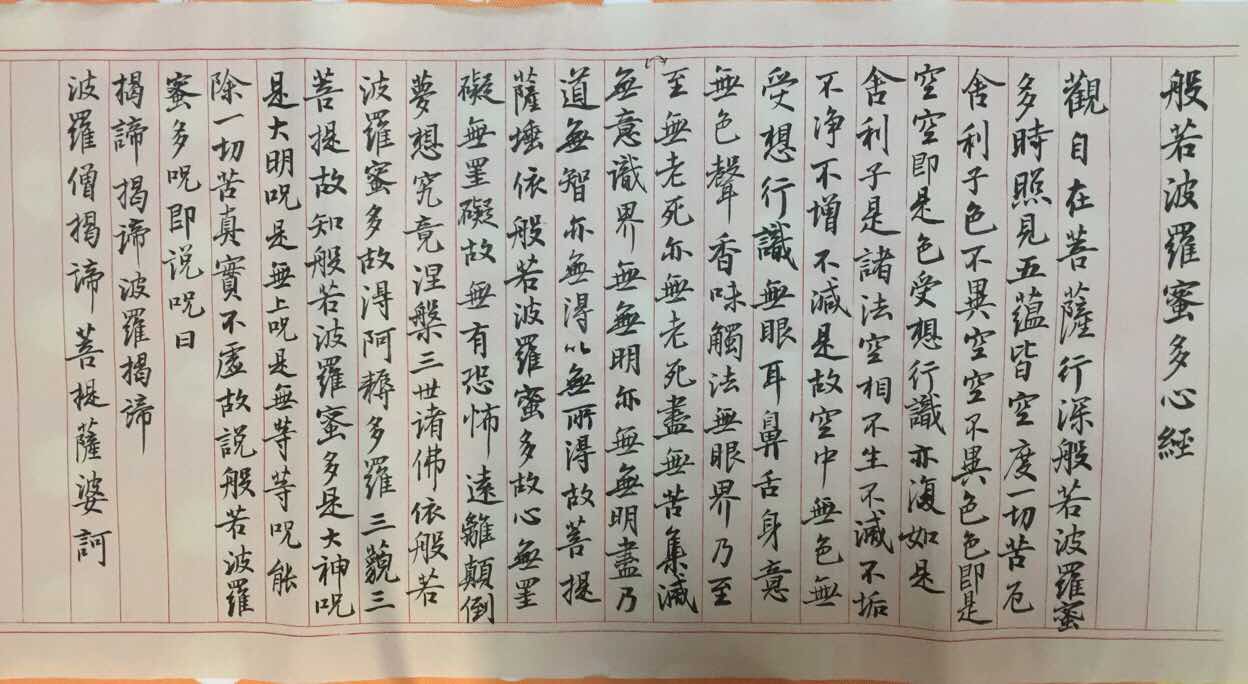 般若波羅蜜多心經
觀自在菩薩行深般若波羅蜜
多時照見五蘊皆空度一切苦厄
舍利子色不異空空不異色色即是
空空即是色受想行識亦復如是
舍利子是諸法空相不生不滅不垢
不净不增不減是故空中無色無
受想行識無眼耳鼻舌身意
無色聲香味觸法無眼界乃至
至無老死亦無老死盡無苦集滅
無意識界無無明亦無無明盡乃
道無智亦無得以無所得故菩提
薩埵依般若波羅蜜多故心無罣
礙無罣礙故無有恐怖遠離顛倒
夢想究竟涅槃三世诸佛依般若
波羅蜜多故得阿耨多羅三藐三
菩提故知般若波羅蜜多是大神呪
是大明呪是無上呪是無等等呪能
除一切苦真實不虛故説般若波羅
蜜多呪即説呪曰
揭諦揭諦波羅揭諦
波羅僧揭諦菩提薩婆訶